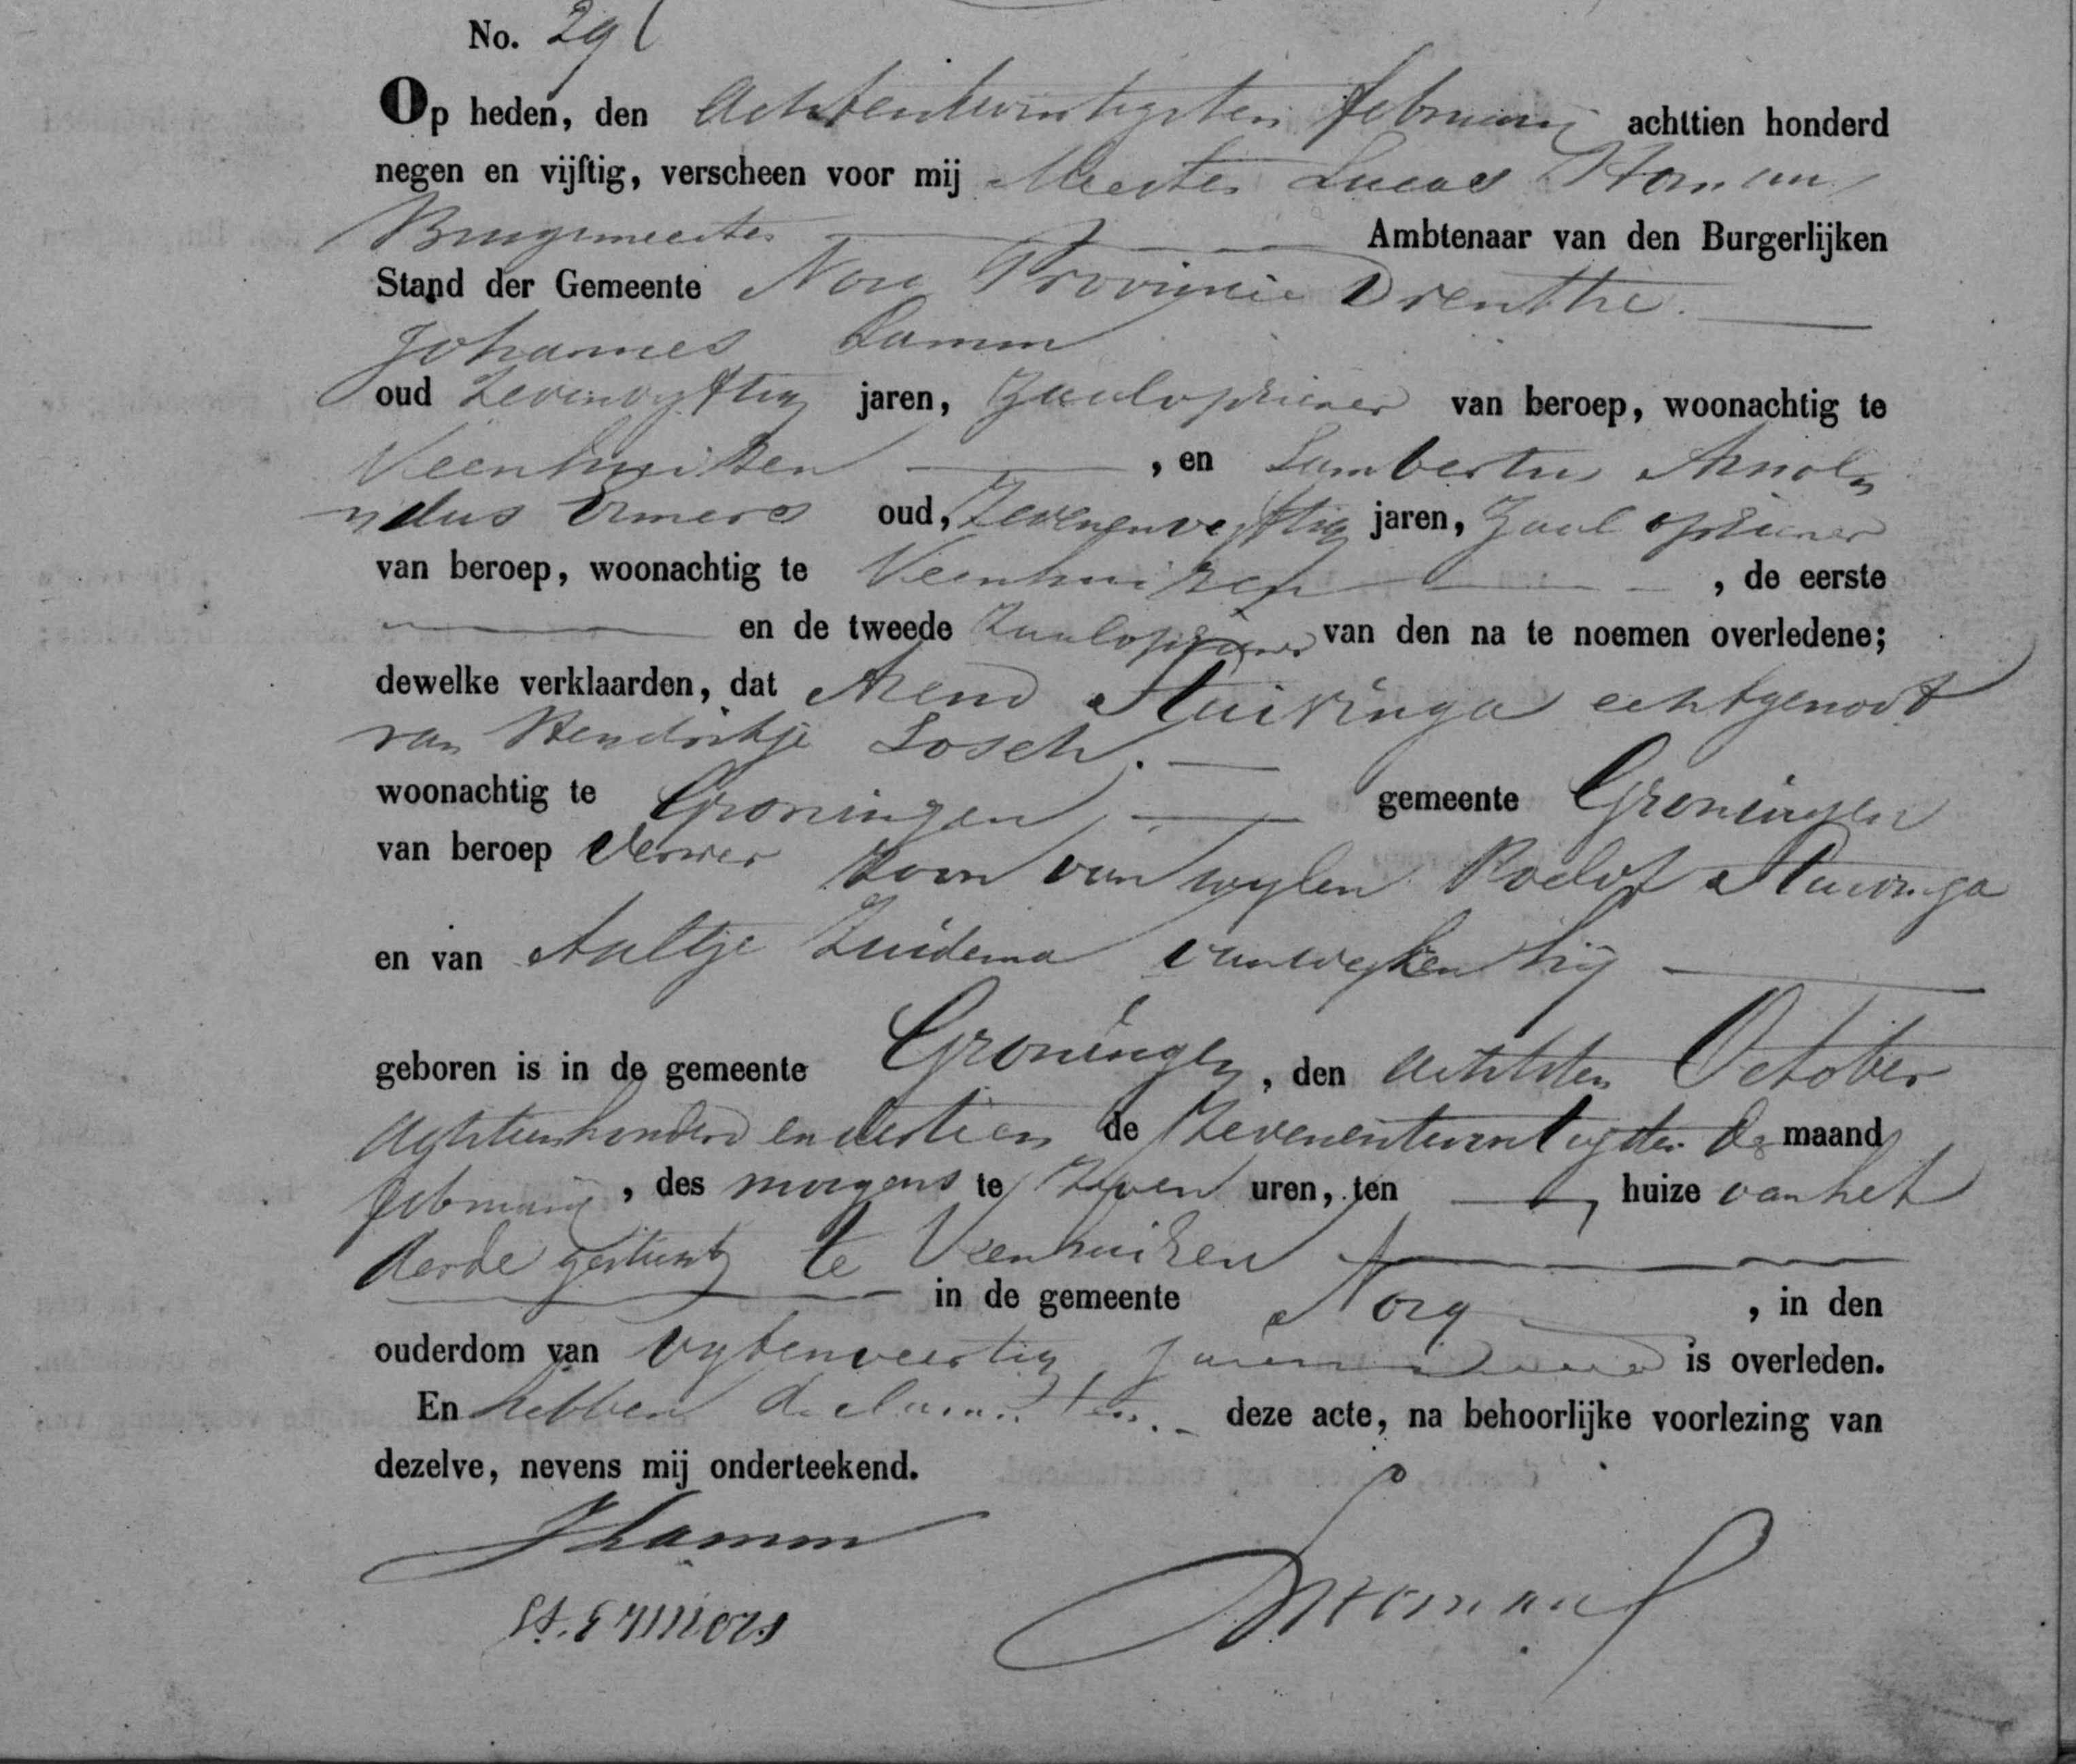 No. 29
Op heden, den Achtentwintigsten february achttien honderd
negen en vijftig, verscheen voor mij Meester Lucas Homan
Burgemeester Ambtenaar van den Burgerlijken
Stand der Gemeente Norg Provincie Drenthe.
Johannes Lamm
oud Zevenvyftig jaren, Zaalopziener van beroep, woonachtig te
Veenhuizen , en Lambertus Arnol
ndus Ermers oud, Zevenenvyftig jaren, Zaal opziener
van beroep, woonachtig te Veenhuizen , de eerste
en de tweede Zaalopziener van den na te noemen overledene;
dewelke verklaarden, dat Arend Stuivinga echtgenoot
van Hendrikje Losch.
woonachtig te Groningen gemeente Groningen
van beroep Verwer Zoon van wylen Roelof Stuivinga
en van Aaltje Zuidema van welken hij
geboren is in de gemeente Groningen, den achtsten October
Achttienhonderd en dertien de Zevenentwintigsten der maand
february, des morgens te Zeven uren, ten huize van het
derde gesticht te Veenhuizen
in de gemeente Norg , in den
ouderdom van vyfenveertig Jaren is overleden.
En hebben declaranten deze acte, na behoorlijke voorlezing van
dezelve, nevens mij onderteekend.
J Lamm
LA. Ermers
Homan